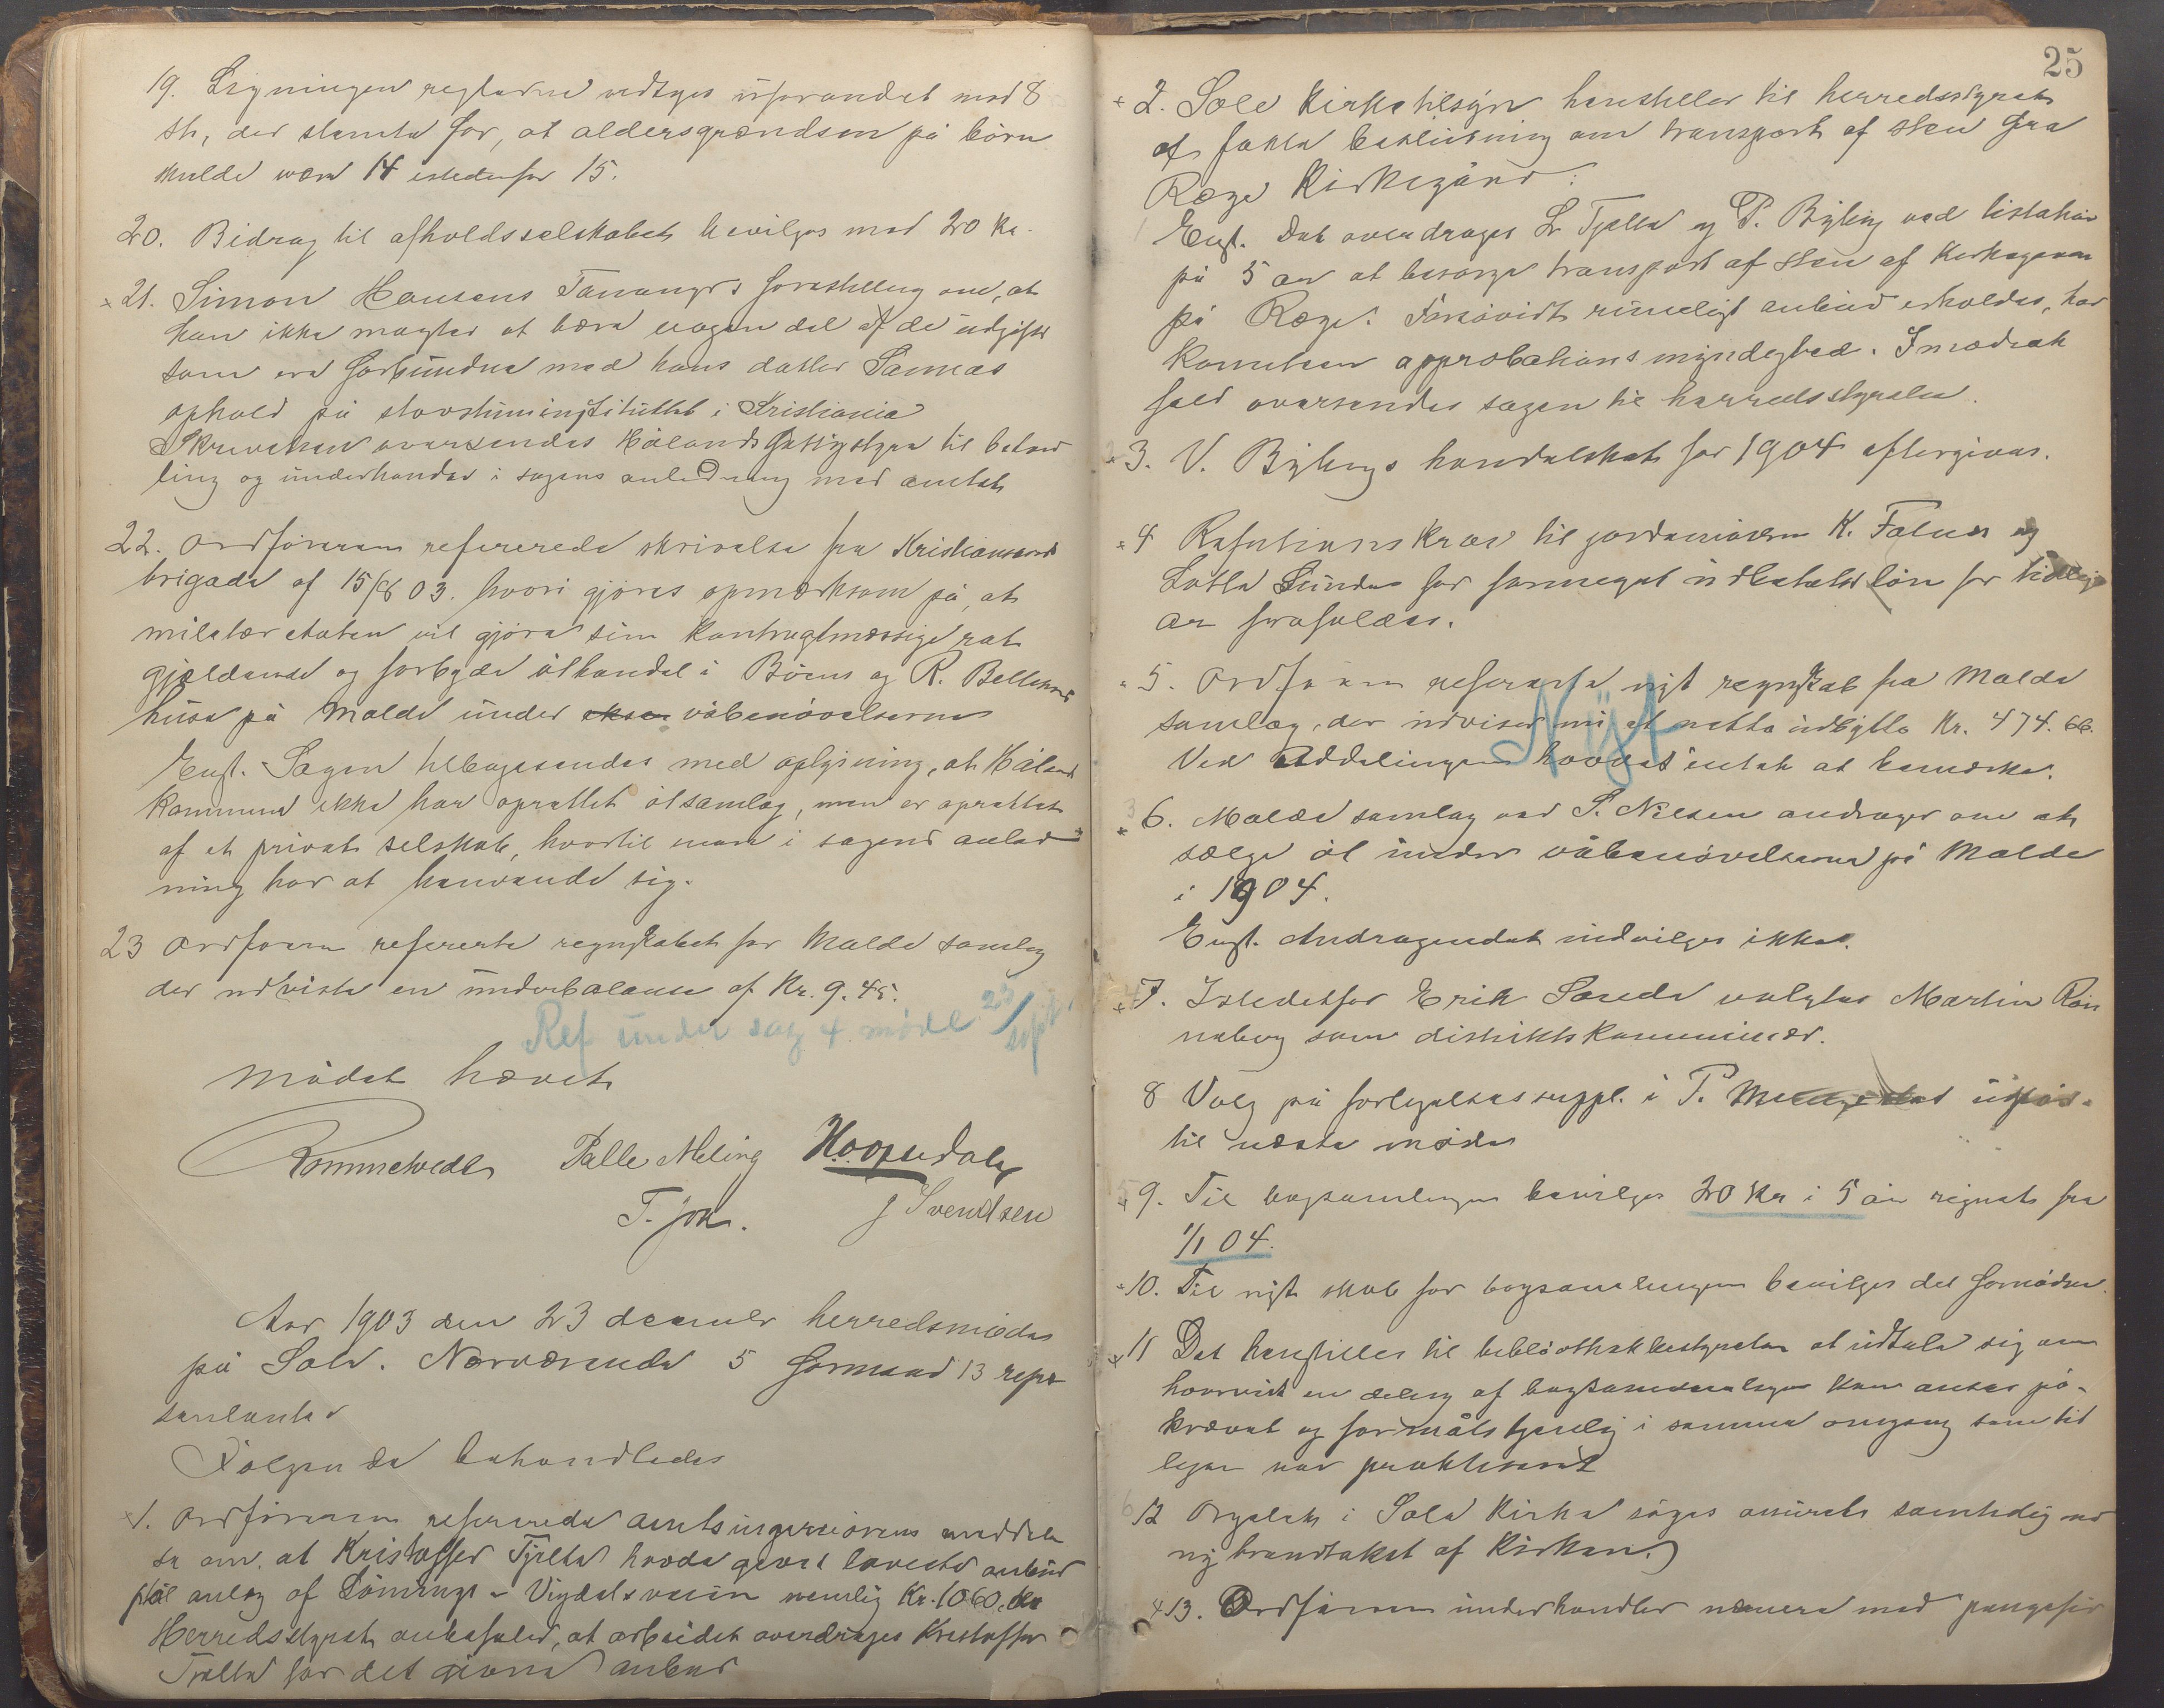 19. Ligningen reglerne vedtages uforandret mod 8
st., der stemte for, at aldersgrændsen på börn
skulde være 14 istedenfor 15.
20. Bidrag til afholdsselskabet bevilges med 20 kr.
21. Simon Hansens Tananger forestilling om, at
han ikke magter at bære nogen del af de udgifter
som ere forbundne med hans datter Sannas
ophold på dövstumminstituttet i Kristiania
Skrivelsen oversendes Hålands fattigstyre til behand
ling og underhandles i sagens anledning med amtet
22. Ordföreren refererede skrivelse fra Kristianssands
brigade af 15/8 03. hvori gjöres opmærksom på, at
militæretaten vil gjöre sin kontragtmæssige ret
gjældende og forbyde ölhandel i Böens og R.
huse på Malde under våbenövelserne
Enst. Sagen tilbagesendes med oplysning, at Håland
kommune ikke har oprettet ölsamlag, men er oprettet
af et privat selskab, hvortil man i sagens anled
ning har at henvende sig.
23 Ordföreren refererte regnskabet for Malde samlag
der udviste en underbalance af Kr. 9.45.
Ref under sag 4 möde 23/ sept.
Mödet hævet
Rommetvedt Palle Meling H. Opsedal
T. Joa. J Svendsen
Aar 1903 den 23 december herredsmöde
på Sola. Nærværende 5 formænd 13 repre
sentanter
Fölgende behandledes
1. Ordföreren refererede amtsingeniörens meddelel
se om, at Kristoffer Tjelta havde gjort laveste anbud
på anlæg af - Vigdalsveien nemlig Kr. 1060,
Herredsstyret anbefaler, at arbeidet overdrages Kristoffer
Tjelta for det givne anbud
25
2. Sole Kirketilsyn henstiller til herredsstyret
at fatte beslutning om transport af sten fra
Ræge Kirkegård:
Enst. Det overdrages L. Tjelta og P. Byberg ved
på 5 år at besörge transport af sten af Kirkegården
på Ræge. Forsåvidt rimeligt anbud erholdes, har
komiteen approbations myndighed. I modsat
fald oversendes sagen til herredsstyrelsen.
3. V. Bybergs handelskat for 1904 eftergives.
4 Refusionskrav til jordemödrene K. Folmer og
Lotte Sunde for formeget udbetalt lön for tidligere
år frafaldes.
5. Ordföreren refererte nyt regnskab fra Malde
samlag, der udviser nu et netto udbytte Kr. 474.66.
Ved uddelingen havdes intet at bemærke.
Nyt
6. Malde samlag ved S. Nilsen andrager om at
sælge öl under våbenövelserne på Malde
i 1904.
Enst. Andragendet indvilges ikke.
7. Istedetfor Erik Sande valgtes Martin Rön
neberg som distriktskommissær.
8 Valg på forligelsessuppl. i P. udsås.
til næste möde
9. Til bogsamlingen bevilges 20 kr i 5 år regnet fra
1/1 04.
10. Til nyt skab for bogsamlingen bevilges det fornödne.
11 Det henstilles til bibliothekbestyrelsen at udtale sig om
hvorvidt en deling af bogsamlingen kan anses på-
krævet og formålstjenlig i samme omgang som tid
ligere var praktiseret
12 Orgelet i Sola Kirke söges assureret samtidig med
ny brandtakst af Kirken.
13. Ordföreren underhandler nærmere med